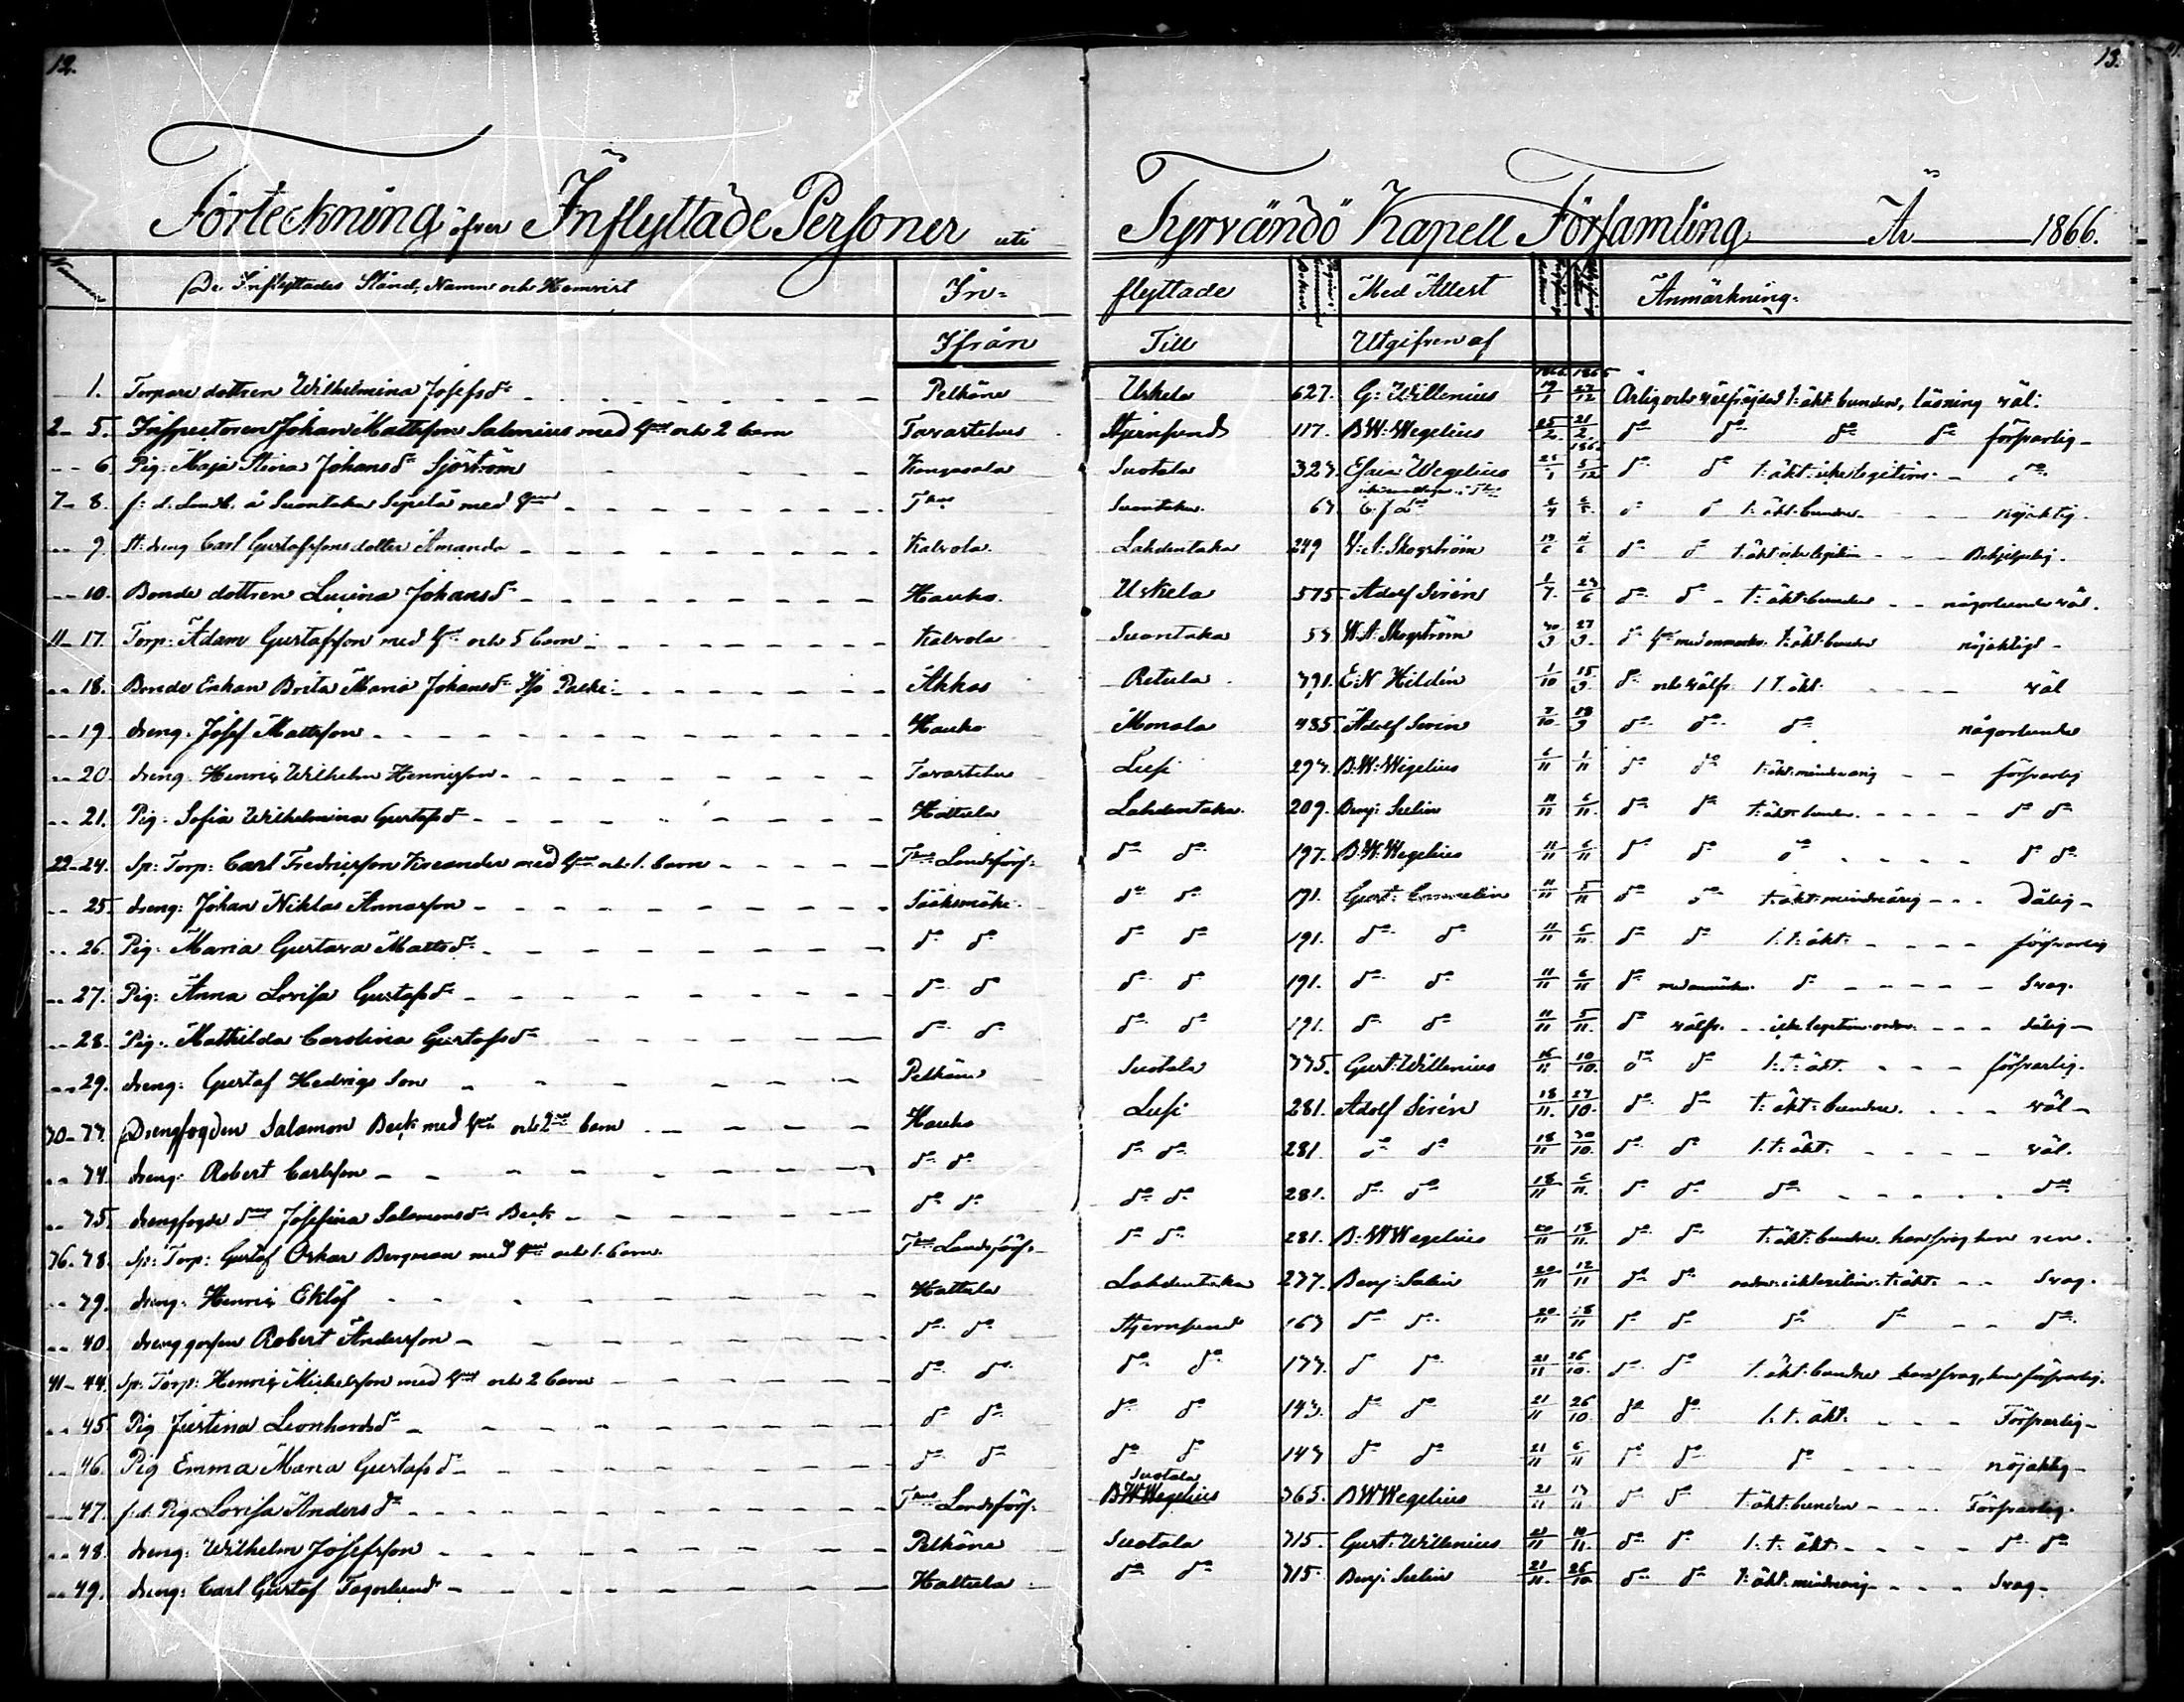 12.
13.
Förteckning öfver Inflyttade Personer uti Tyrvändö Kapell Församling År 1866.
De Inflyttades Stånd, Namn och Hemvist In= flyttade Med Attest Anmärkning.
Ifrån Till Utgifven af
1. Torpare dottren Wilhelmina Josefsdr Pelkäne Uskela 627. G: Willenius 19/1 27/12 Ärlig och välfrejdad t: äkt: bunden, läsning väl.
2-5. Inspectoren Johan Mattsson Salenius med hu och 2 barn Tavastehus Stjernsund 117. B W: Wegelius 25/2 21/2 do do do do försvarlig
6 Pig: Maja Stina Johansdr Sjöström Kangasala Suotala 323. Esaia Wegelius do do t: äkt: icke legitim. do
7-8. f: d. å Suontaka Sepelä med hu Suontaka 63 t: äkt: bunden nöjaktig.
9 St: dreng Carl Gustafssons dotter Amanda Kalvola. Lahdentaka 249 Skogström 19/6 do do t: äkt: icke legitim Behjelpelig.
10. Bonde dottren Lucina Johansdr Hauho. Uskela 575. Adolf Sirén 1/7. 24/6 do do t: äkt: bunden någorlunda väl.
11-17. Torp: Adam Gustafsson med hu och 5 barn Kalvola Suontaka 53 Skogström 30/9 27/9. do t: äkt: bunden nöjaktigt
18. Bonde Enkan Brita Maria Johansdr Akkas Retula 391. E: N Hildén 1/10 15/9. do och välfr. t. äkt. väl
19. dreng. Josef Mattsson Hauho Monala 485. Adolf Sirén 7/10. 18/9 do do do någorlunda
20. dreng. Henric Wilhelm Henricsson Tavastehus Lusi 293. B: W: Wegelius 6/11 1/11 do do t: äkt: minderårig försvarlig
21. Pig: Sofia Wilhelmina Gustafsdr Hattula Lahdentaka. 209. Benj: Seelin 11/11 6/11. do do t: äkt: bunden do do
22-24. Sp: Torp: Carl Fredricsson Kreander med hu och 1. barn Thus Landsförs: do do 197. B: W: Wegelius 11/11 6/11 do do do do do
25. dreng: Johan Niklas Annasson Sääksmäki do do 191. 11/11 5/11 do do t: äkt: minderårig Dålig
26. Pig: Maria Gustava Mattsdr do do do do 191. do do 11/11 6/11. do do l: t: äkt: försvarlig
27. Pig: Anna Lovisa Gustafsdr do do do do 191. do do 11/11 6/11 do do Svag.
28. Pig. Mathilda Carolina Gustafsdr do do do do 191. do do 11/11 5/11. do välfr. dålig
29. dreng: Gustaf Hedvigs Son Pelkäne Suotala 335. Gust: Willenius 16/11. 10/10. do do l: t: äkt. försvarlig.
30-33. Drengfogden Salomon Beck med hu och 2 barn Hauho Lusi 281. Adolf Sirén 18/11. 27/10. do do t: äkt: bunden. väl
34. dreng: Robert Carlsson do do do do 281. do do 18/11 30/10. do do l: t: äkt: väl.
35. drengfogde Josefina Salomonsdr Beck do do do do 281. do do 18/11 6/11. do do do do
36. 38. Sp: Torp: Gustaf Oskar Bergman med hu och 1. barn. Thus Landsförs. do do 281. B: W Wegelius 20/11 18/11. do do t: äkt: bunden.
39. dreng: Henric Eklöf Hattula Lahdentaka 237. Benj: Seelin 20/11 12/11 do do Svag.
40. dreng gossen Robert Andersson do do Stjernsund 163 do do 20/11 18/11 do do do do do
41-44. Sp: Torp: Henric Mickelsson med hu och 2 barn do do do do 133. do do 21/11 26/10. do do t: äkt: bunden han svag, hon försvarlig.
45. Pig Justina Leonhardsdr do do do do 143. do do 21/11 26/10 do do l: t: äkt: Försvarlig
46. Pig Emma Maria Gustafsdr do do do do 143 do do 21/11 6/11 do do do nöjaktig
Suotala
47. f: d. Pig Lovisa Andersdr Thus Landsförs: B W Wegelius 365. B W Wegelius 21/11 13/11 do do t: äkt: bunden Försvarlig.
48. dreng: Wilhelm Josefsson Pelkäne Suotala 315. Gust: Willenius 21/11 10/11. do do l: t: äkt: do do
49. dreng: Carl Gustaf Fagerlund Hattula do do 315. Benj: Seelin 21/11. 26/10. do do t: äkt: minderårig Svag.